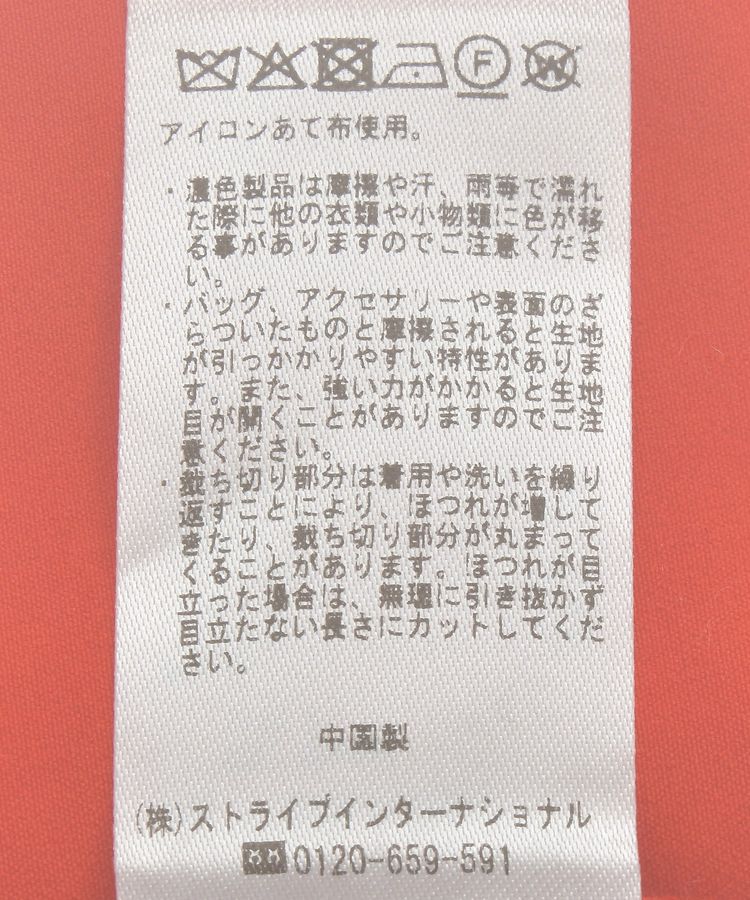 F
W
アイロンあて布使用。
・濃色製品は摩擦や汗、雨等で濡れ
た際に他の衣類や小物類に色が移
る事がありますのでご注意くださ
い。
・バッグ、アクセサリーや表面のざ
らついたものと摩擦されると生地
が引っかかりやすい特性があり ま
す。また、強い力がかかると生地
目が開くことがありますのでご注
意ください。
・裁ち切り部分は着用や洗いを繰り
返すことにより、ほつれが増して
きたり、裁ち切り部分が丸まって
くることがあります。ほつれが目
立った場合は、無理に引き抜かず
目立たない長さにカットしてくだ
さい。
中国製
(株)ストライプインターナショナル
0120-659-591